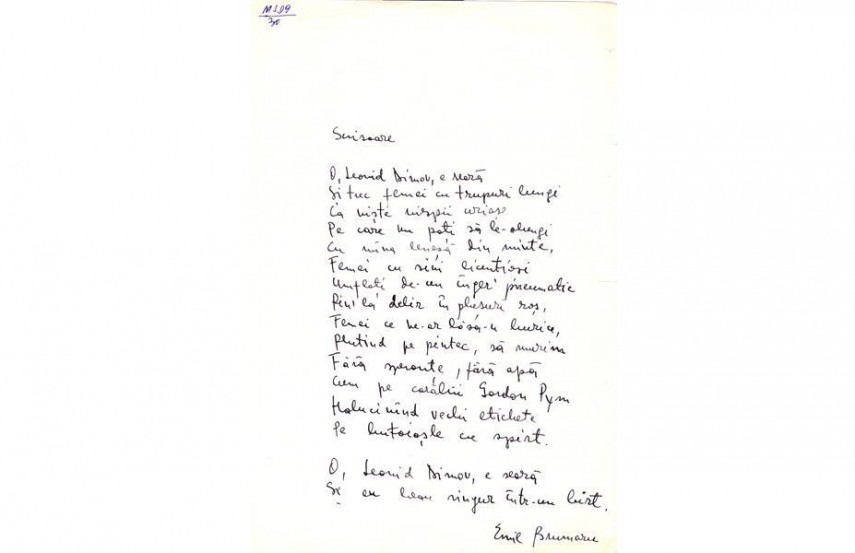 M209
30
Scrisoare
O, Leonid Dimov, e seară
Și trec femei cu trupuri lungi
Ca niște viespii uriașe
Pe care nu poți să le-alungi
Cu mîna lenesă din minte,
Femei cu sîni licențioși
Umflați de-un înger pneumatic
Pîn' la delir în plusuri roș,
Femei ce ne-ar lăsa-n burice,
Plutind pe pîntec, să murim
Fără speranțe, fără apă
Cum pe corăbii Gordon Pym
Halucinînd vechi etichete
Pe butoiașe cu spirt.
O, Leonid Dimov, e seară
Și eu beau singur într-un birt.
Emil Brumaru